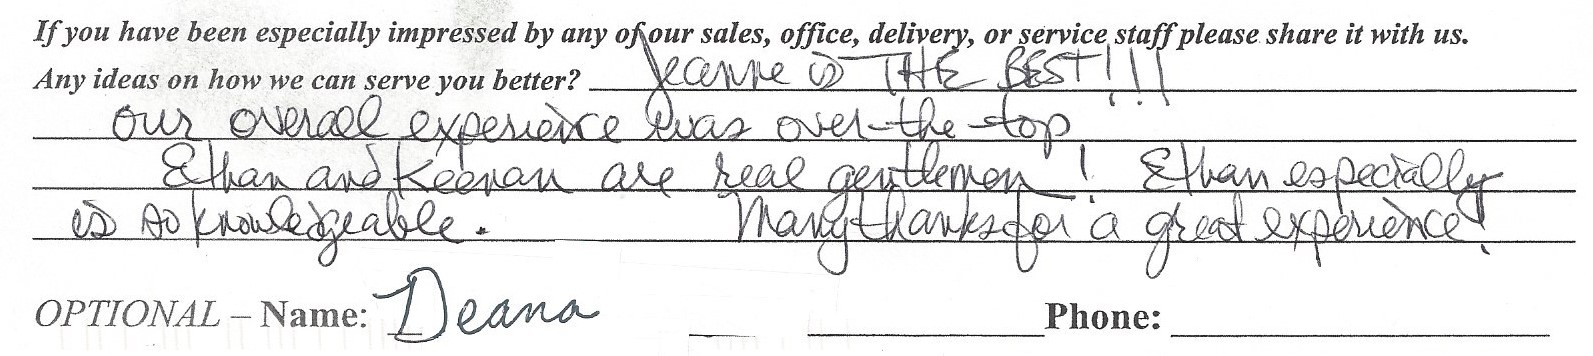 If you have been especially impressed by any of our sales, office, delivery, or service staff please share it with us.
Any ideas on how we can serve you better? Jeanne is THE BEST!!!
Our overall experience was over-the-top
Ethan and Keenan are real gentlemen! Ethan especially
is so knowledgeable. Many thanks for a great experience!
OPTIONAL – Name: Deana Phone: